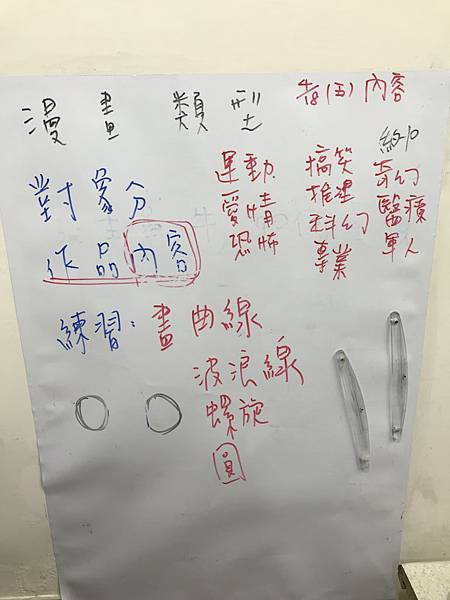 漫畫類型
4/8(五)內容
對象分
作品內容
運動
愛情
恐怖
搞笑
推理
科幻
專業
奇幻
醫療
軍人
練習:畫曲線
波浪線
螺旋
圓